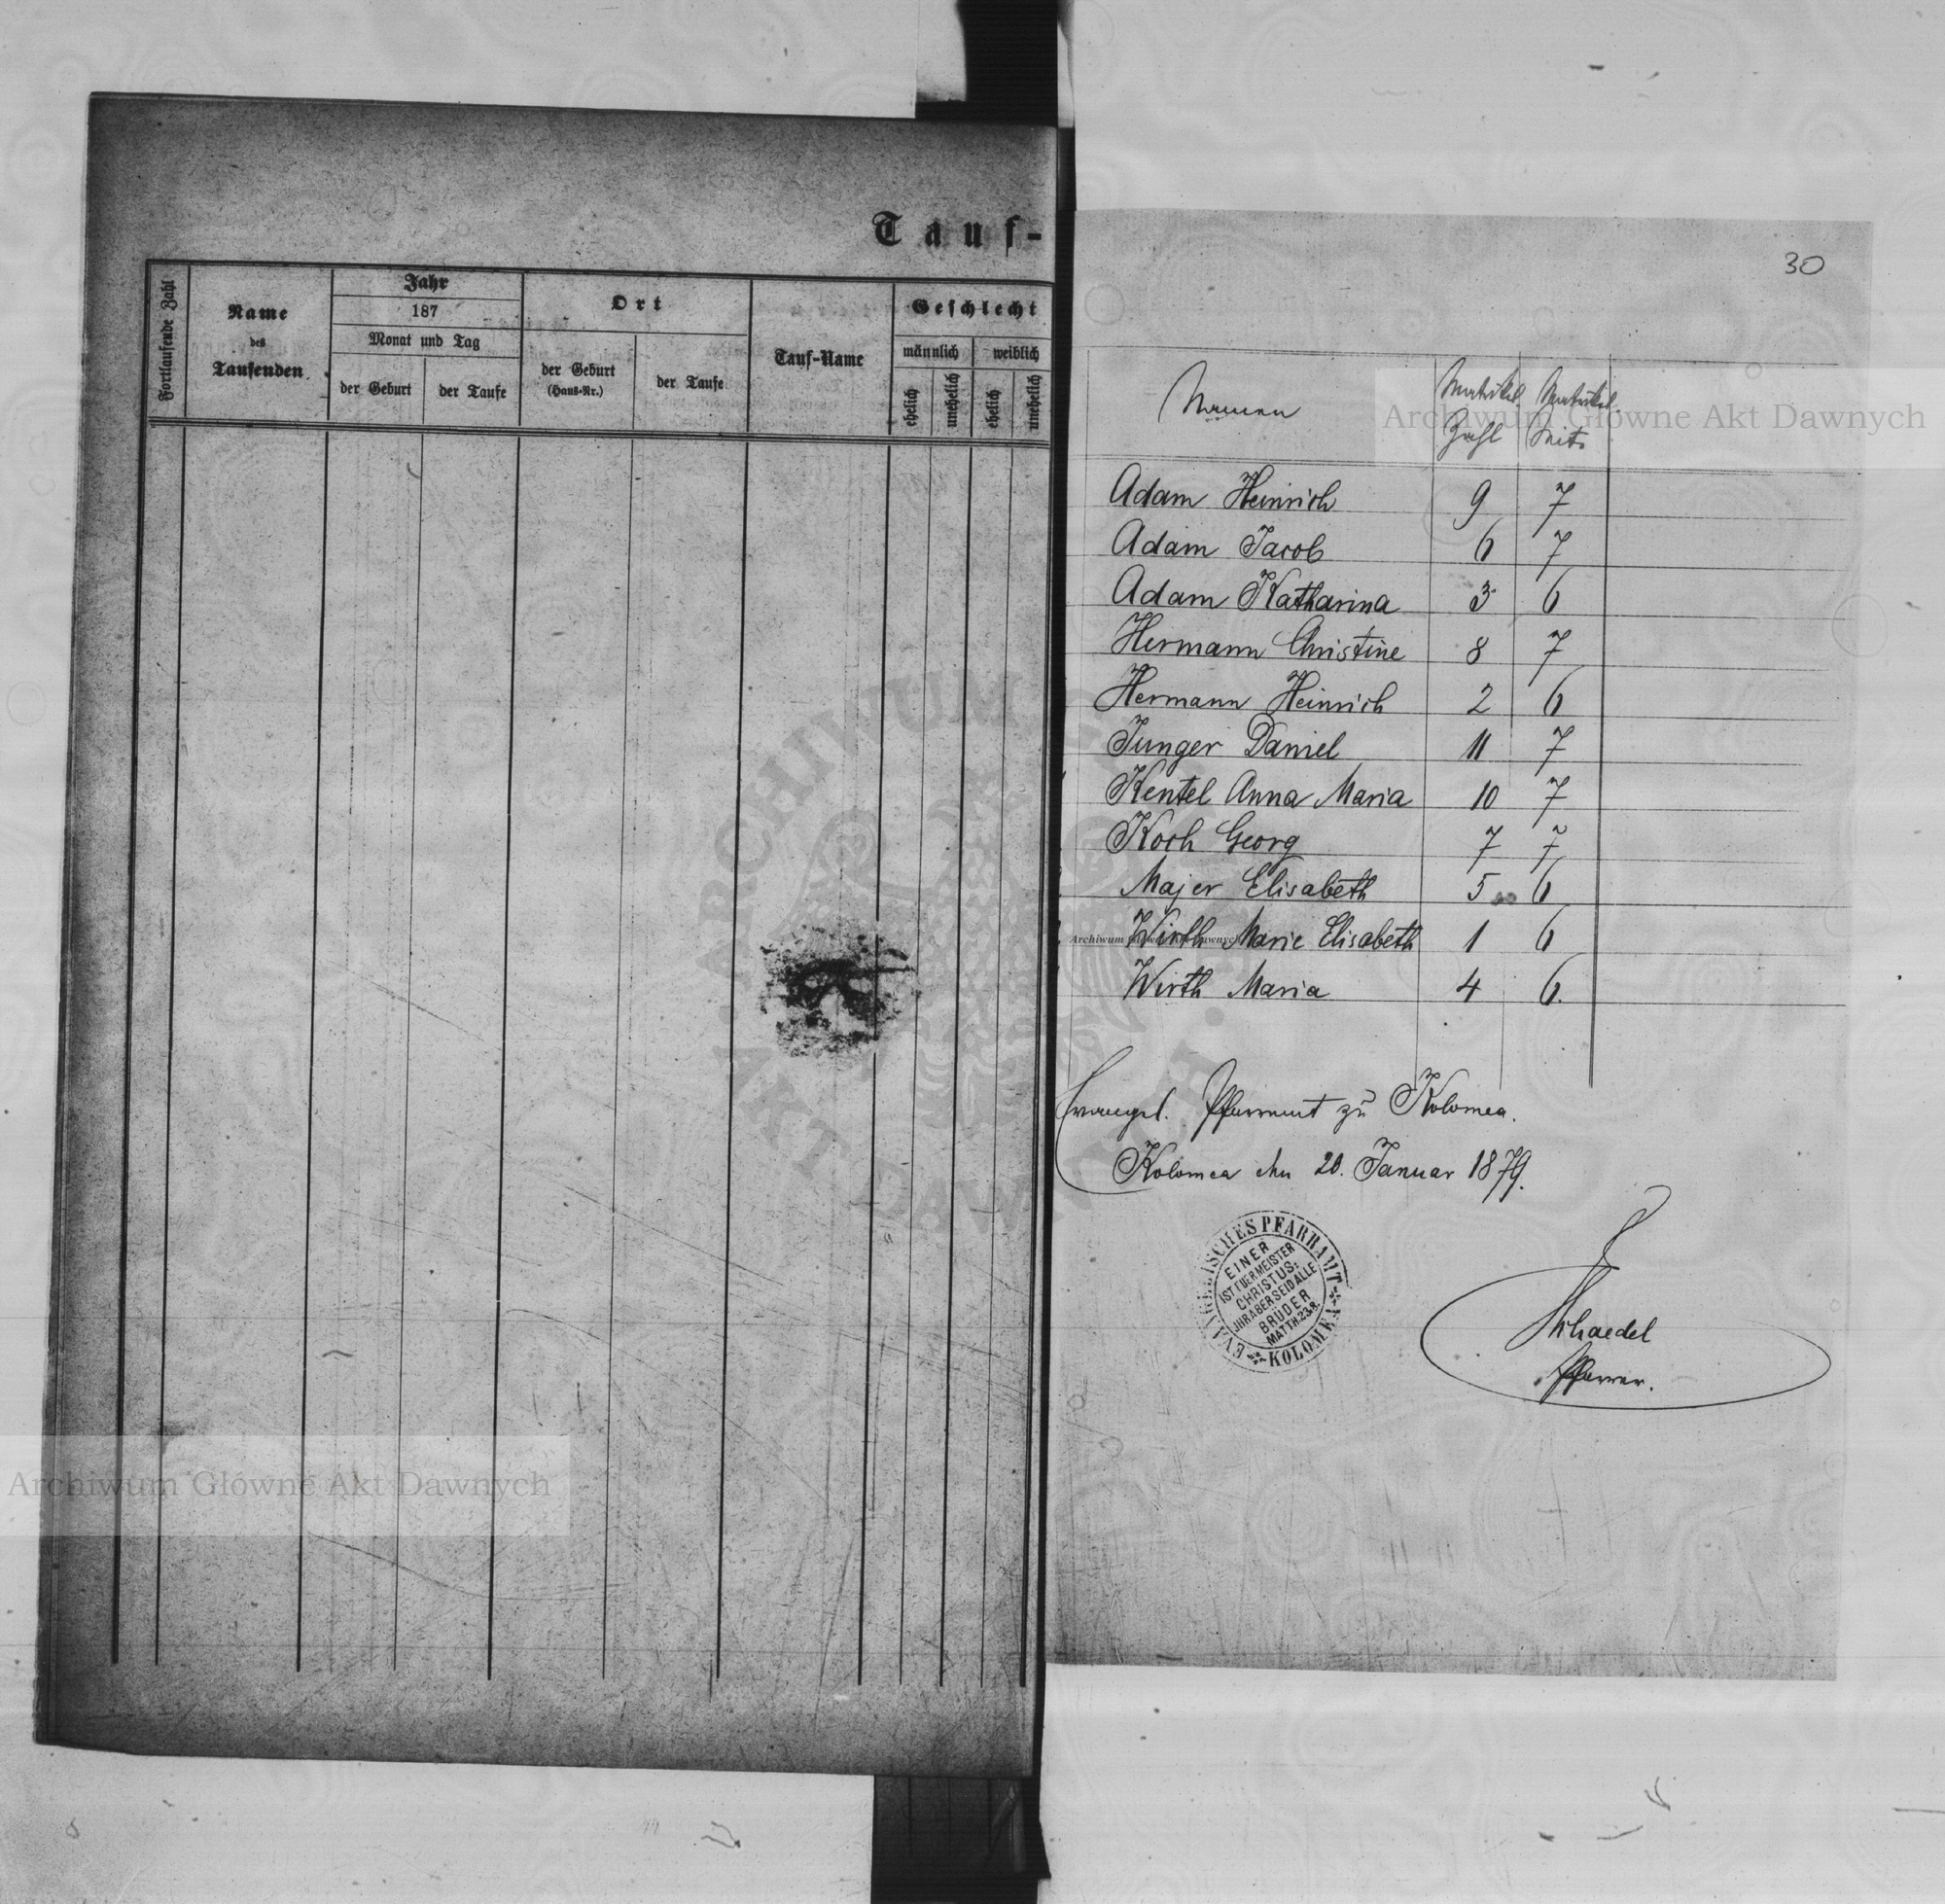 Tauf-
Fortlaufende Zahl
Name
des
Taufenden
Jahr
187
Monat und Tag
der Geburt
der Taufe
Ort
der Geburt
(Haus-Nr.)
der Taufe
Tauf-Name
Geschlecht
männlich
weiblich
ehelich
unehelich
ehelich
unehelich
30
Namen Matrikel Matrikel
Zahl Seite
Adam Heinrich 9 7
Adam Jacob 6 7
Adam Katharina 3 6
Hermann Christine 8 7
Hermann Heinrich 2 6
Junger Daniel 11 7
Kentel Anna Maria 10 7
Koch Georg 7 7
Majer Elisabeth 5 6
Wirth Marie Elisabeth 1 6
Wirth Maria 4 6.
Evangel. Pfarramt zu Kolomea.
Kolomea den 20. Januar 1879.
EVANGELISCHES PFARRAMT
KOLOMEA
EINER
IST EUER MEISTER
CHRISTUS:
IHR ABER SEID ALLE
BRÜDER
MATTH. 23.8.
Schaedel
Pfarrer.
Archiwum Główne Akt Dawnych
Archiwum Główne Akt Dawnych
ARCHIWUM
AKT DAWNYCH